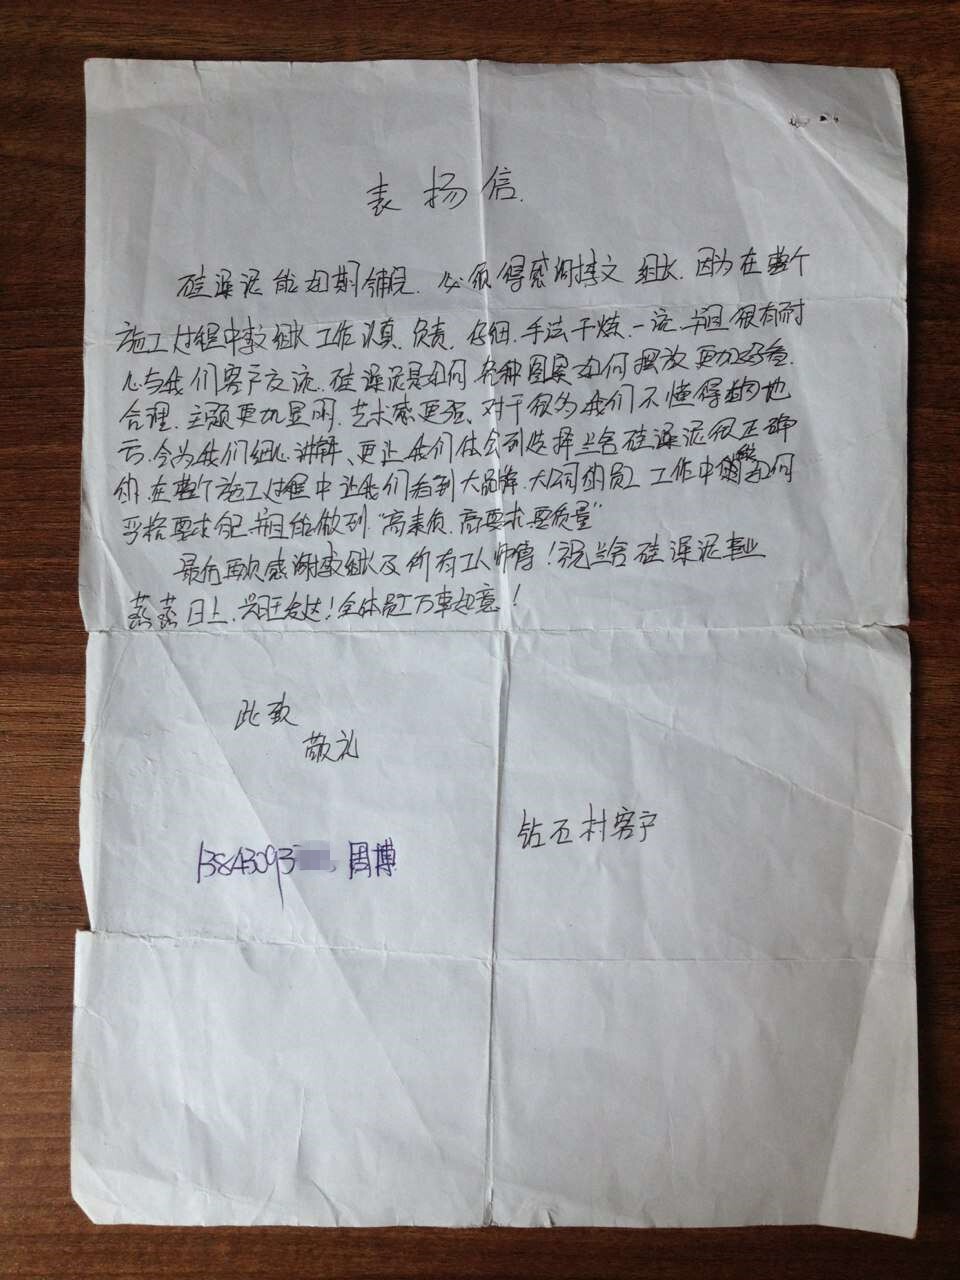 表扬信.
硅藻泥能如期铺完. 必须得感谢 文 组长. 因为在整个
施工过程中 组长工作认真. 负责. 仔细. 手法干炼. 一流. 并且很有耐
心与我们客户交流. 硅藻泥是如何 各种图案如何摆放更加好看.
合理. 主题更加显明. 艺术感更强. 对于很多我们不懂得的地
方. 会为我们细心讲解、更让我们体会到选择兰舍硅藻泥很正确
的. 在整个施工过程中让我们看到大品牌. 大公司的员工 工作中 如何
严格要求自己. 并且能做到 "高素质. 高要求. 要质量"
最后再次感谢 组长及所有工人师傅! 祝兰舍硅藻泥事业
蒸蒸日上. 兴旺发达! 全体员工万事如意!
此致
敬礼
钻石村客户
13843093 周博